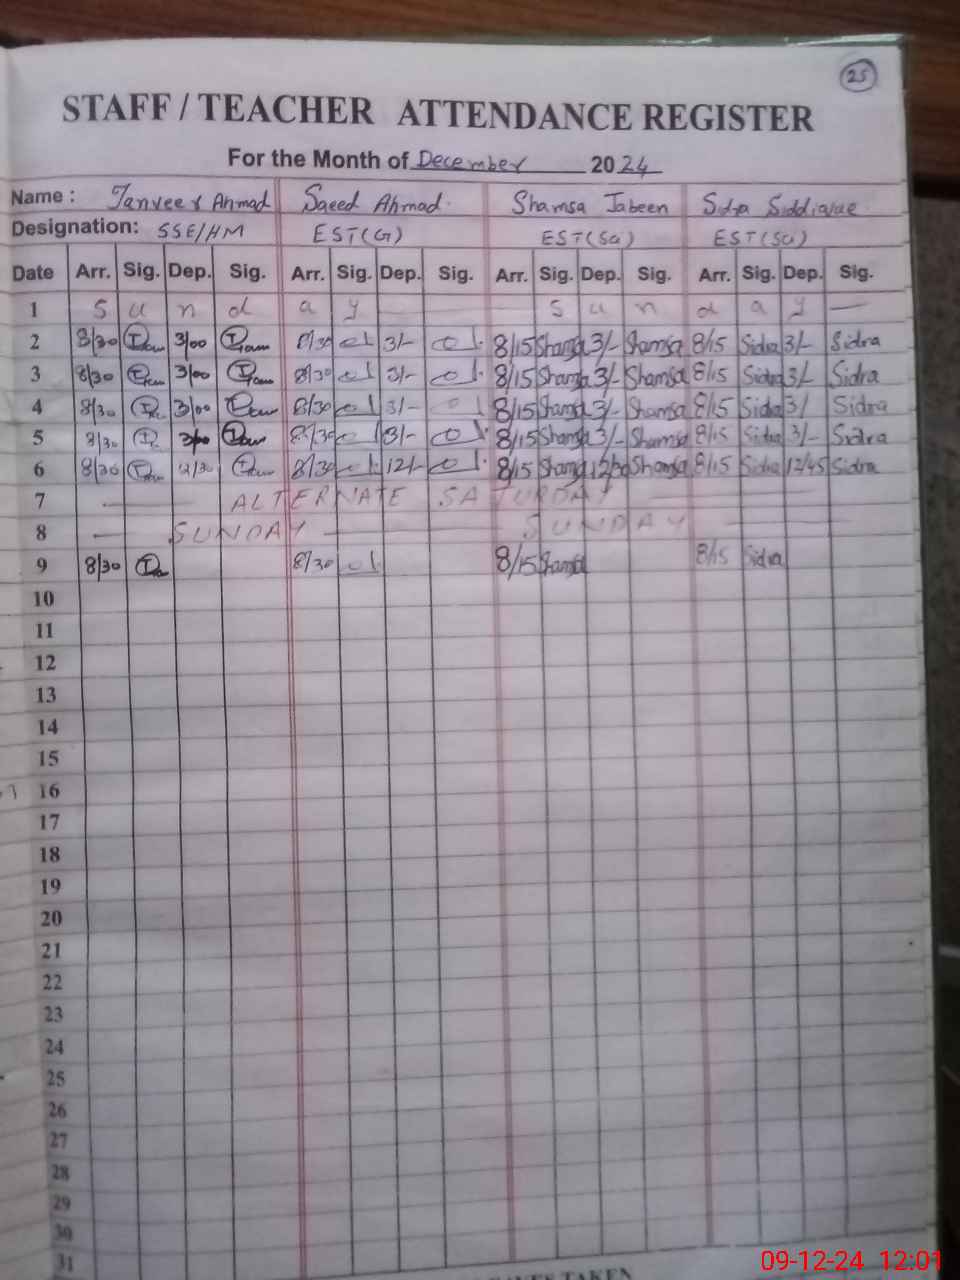 25
STAFF / TEACHER ATTENDANCE REGISTER
For the Month of December 2024
Name : Tanveer Ahmad Saeed Ahmad. Shamsa Jabeen Sidra Siddiquae
Designation: SSE/HM EST(G) EST(SG) EST(SG)
Date Arr. Sig. Dep. Sig. Arr. Sig. Dep. Sig. Arr. Sig. Dep. Sig. Arr. Sig. Dep. Sig.
1 S u n d a y — — S u n d a y —
2 8/30 3/00 8/30 3/- 8/15 Shamsa 3/- Shamsa 8/15 Sidra 3/- Sidra
3 8/30 3/00 8/30 3/- 8/15 Shamsa 3/- Shamsa 8/15 Sidra 3/- Sidra
4 8/30 3/00 8/30 3/- 8/15 Shamsa 3/- Shamsa 8/15 Sidra 3/ Sidra
5 8/30 3/00 8/30 3/- 8/15 Shamsa 3/- Shamsa 8/15 Sidra 3/- Sidra
6 8/30 12/30 8/30 12/- 8/15 Shamsa Shamsa 8/15 Sidra 12/45 Sidra
7 — ALTERNATE SATURDAY —
8 — SUNDAY — SUNDAY —
9 8/30 8/30 8/15 Shamsa 8/15 Sidra
10
11
12
13
14
15
16
17
18
19
20
21
22
23
24
25
26
27
28
29
30
31
TAKEN
09-12-24 12:01